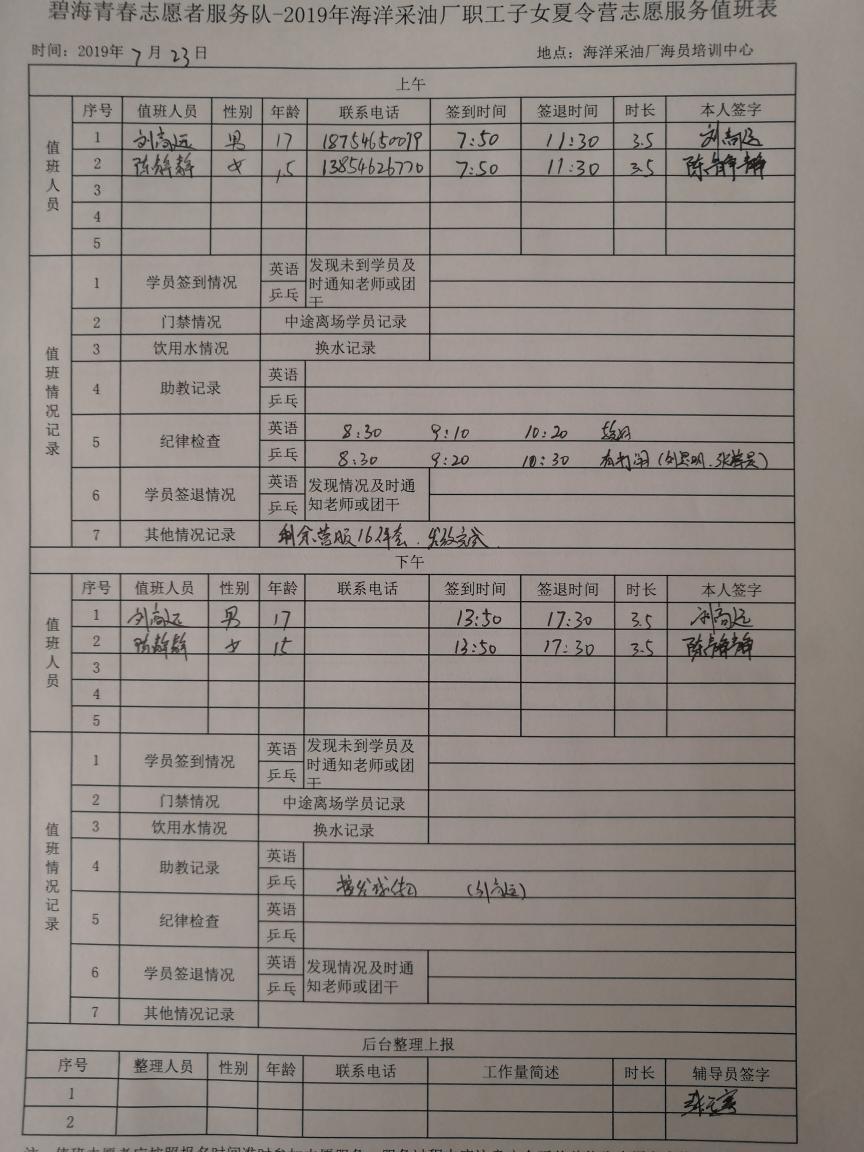 碧海青春志愿者服务队-2019年海洋采油厂职工子女夏令营志愿服务值班表
时间：2019年 7 月 23 日 地点：海洋采油厂海员培训中心
上午
值班人员
序号 值班人员 性别 年龄 联系电话 签到时间 签退时间 时长 本人签字
1 刘高远 男 17 18754650079 7:50 11:30 3.5 刘高远
2 陈静静 女 15 13854626770 7:50 11:30 3.5 陈静静
3
4
5
值班情况记录
1 学员签到情况 英语 乒乓 发现未到学员及时通知老师或团干
2 门禁情况 中途离场学员记录
3 饮用水情况 换水记录
4 助教记录 英语
乒乓
5 纪律检查 英语 8:30 9:10 10:20
乒乓 8:30 9:20 10:30 有打闹
6 学员签退情况 英语 乒乓 发现情况及时通知老师或团干
7 其他情况记录 剩余营服16件套，发放完成.
下午
值班人员
序号 值班人员 性别 年龄 联系电话 签到时间 签退时间 时长 本人签字
1 刘高远 男 17 13:50 17:30 3.5 刘高远
2 陈静静 女 15 13:50 17:30 3.5 陈静静
3
4
5
值班情况记录
1 学员签到情况 英语 乒乓 发现未到学员及时通知老师或团干
2 门禁情况 中途离场学员记录
3 饮用水情况 换水记录
4 助教记录 英语
乒乓 (刘高远)
5 纪律检查 英语
乒乓
6 学员签退情况 英语 乒乓 发现情况及时通知老师或团干
7 其他情况记录
后台整理上报
序号 整理人员 性别 年龄 联系电话 工作量简述 时长 辅导员签字
1
2